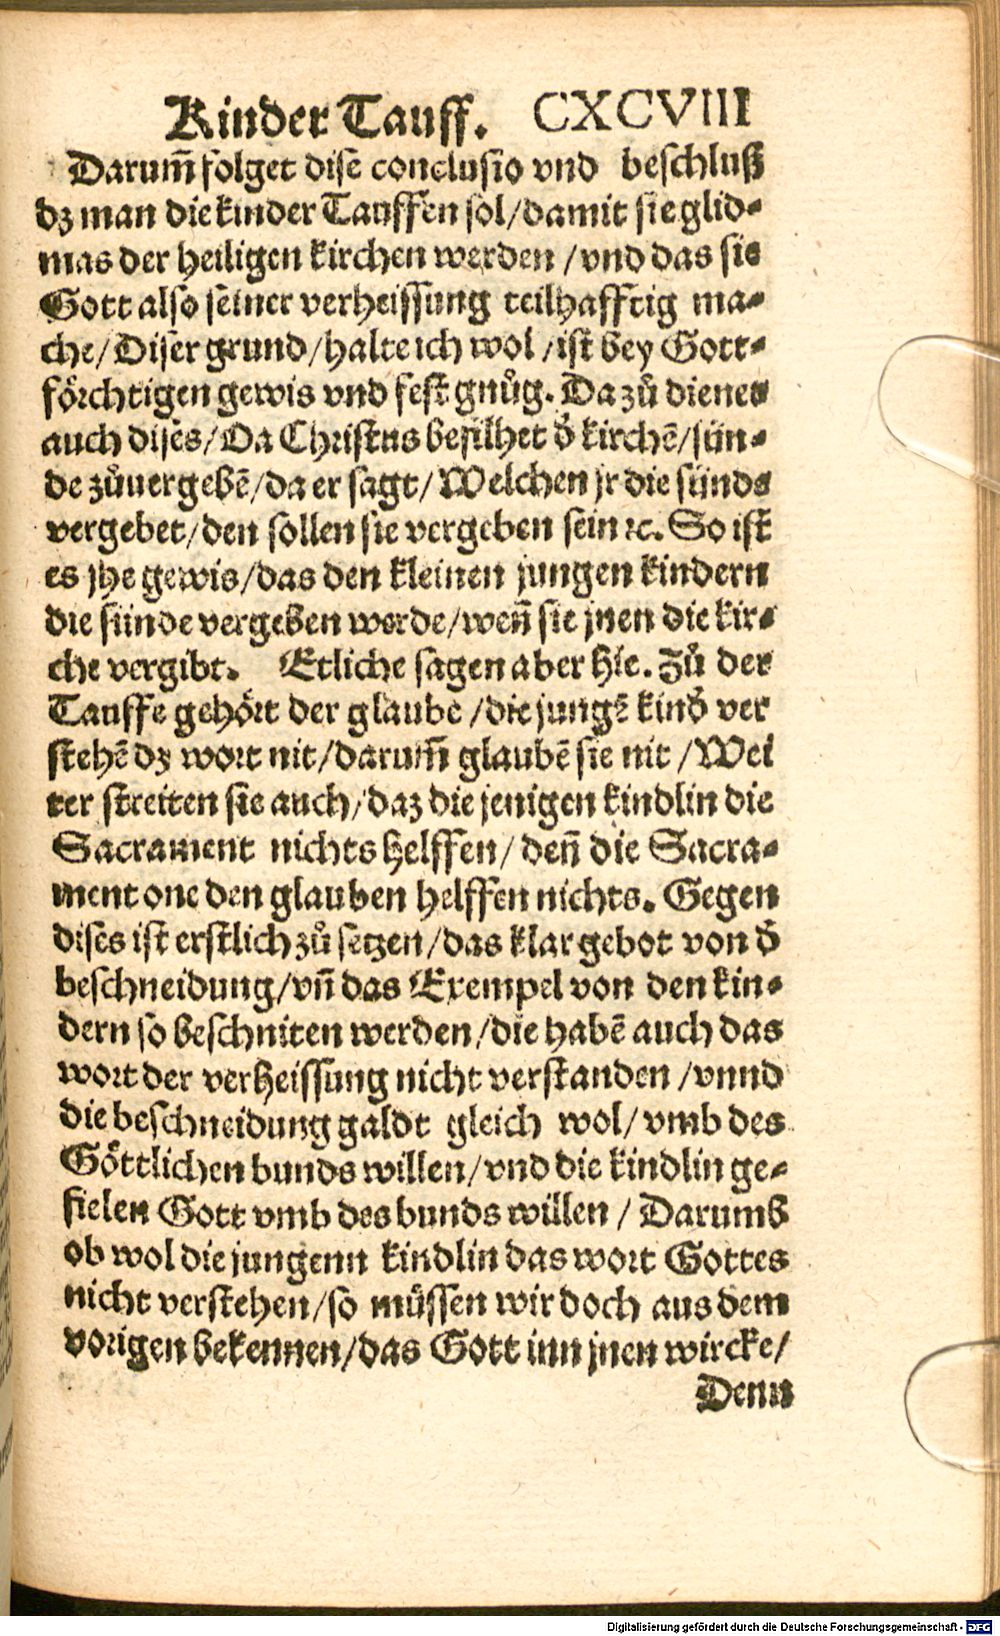 Kinder Tauff. CXCVIII
Darum̄ folget dise conclusio vnd beschluß
dz man die kinder Tauffen sol/damit sie glid-
mas der heiligen kirchen werden /vnd das sie
Gott also seiner verheissung teilhafftig ma-
che/Diser grund/halte ich wol /ist bey Gott-
förchtigen gewis vnd fest gnůg. Dazů dienet
auch dises/Da Christus befilhet d̕ kirchē/sün-
de zůuergebē/da er sagt/Welchen jr die sünde
vergebet/den sollen sie vergeben sein ꝛc. So ist
es jhe gewis/das den kleinen jungen kindern
die sünde vergeben werde/weñ sie jnen die kir-
che vergibt. Etliche sagen aber hie. Zů der
Tauffe gehört der glaube /die jungē kind̕ ver
stehē dz wort nit/darum̄ glaubē sie nit /Wei
ter streiten sie auch/daz die jenigen kindlin die
Sacrament nichts helffen/deñ die Sacra-
ment one den glauben helffen nichts. Gegen
dises ist erstlich zů setzen/das klar gebot von d̕
beschneidung/vñ das Exempel von den kin-
dern so beschniten werden/die habē auch das
wort der verheissung nicht verstanden /vnnd
die beschneidung galdt gleich wol/vmb des
Göttlichen bunds willen/vnd die kindlin ge-
fielen Gott vmb des bunds willen / Darumb
ob wol die jungenn kindlin das wort Gottes
nicht verstehen/so müssen wir doch aus dem
vorigen bekennen/das Gott inn jnen wircke/
Denn
Digitalisierung gefördert durch die Deutsche Forschungsgemeinschaft - DFG